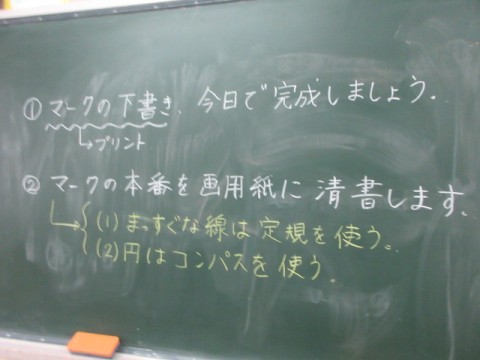 ① マークの下書き、今日で完成しましょう。
→プリント
② マークの本番を画用紙に清書します。
(1) まっすぐな線は定規を使う。
(2) 円はコンパスを使う。